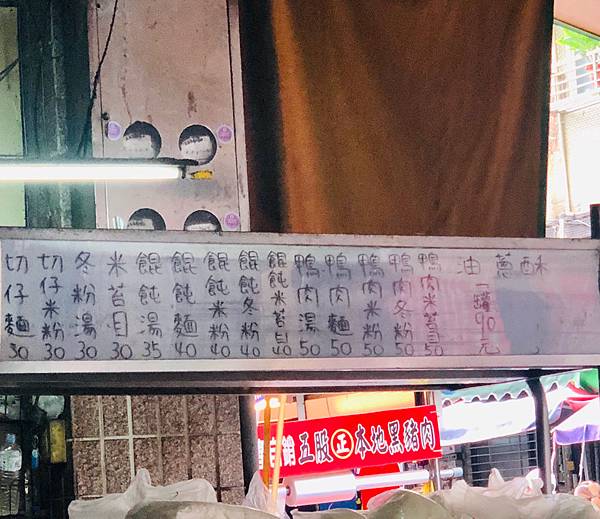 切仔麵 30
切仔米粉 30
冬粉湯 30
米苔目 30
餛飩湯 35
餛飩麵 40
餛飩米粉 40
餛飩冬粉 40
餛飩米苔目 40
鴨肉湯 50
鴨肉麵 50
鴨肉米粉 50
鴨肉冬粉 50
鴨肉米苔目 50
油蔥酥
一罐90元
五股正本地黑豬肉